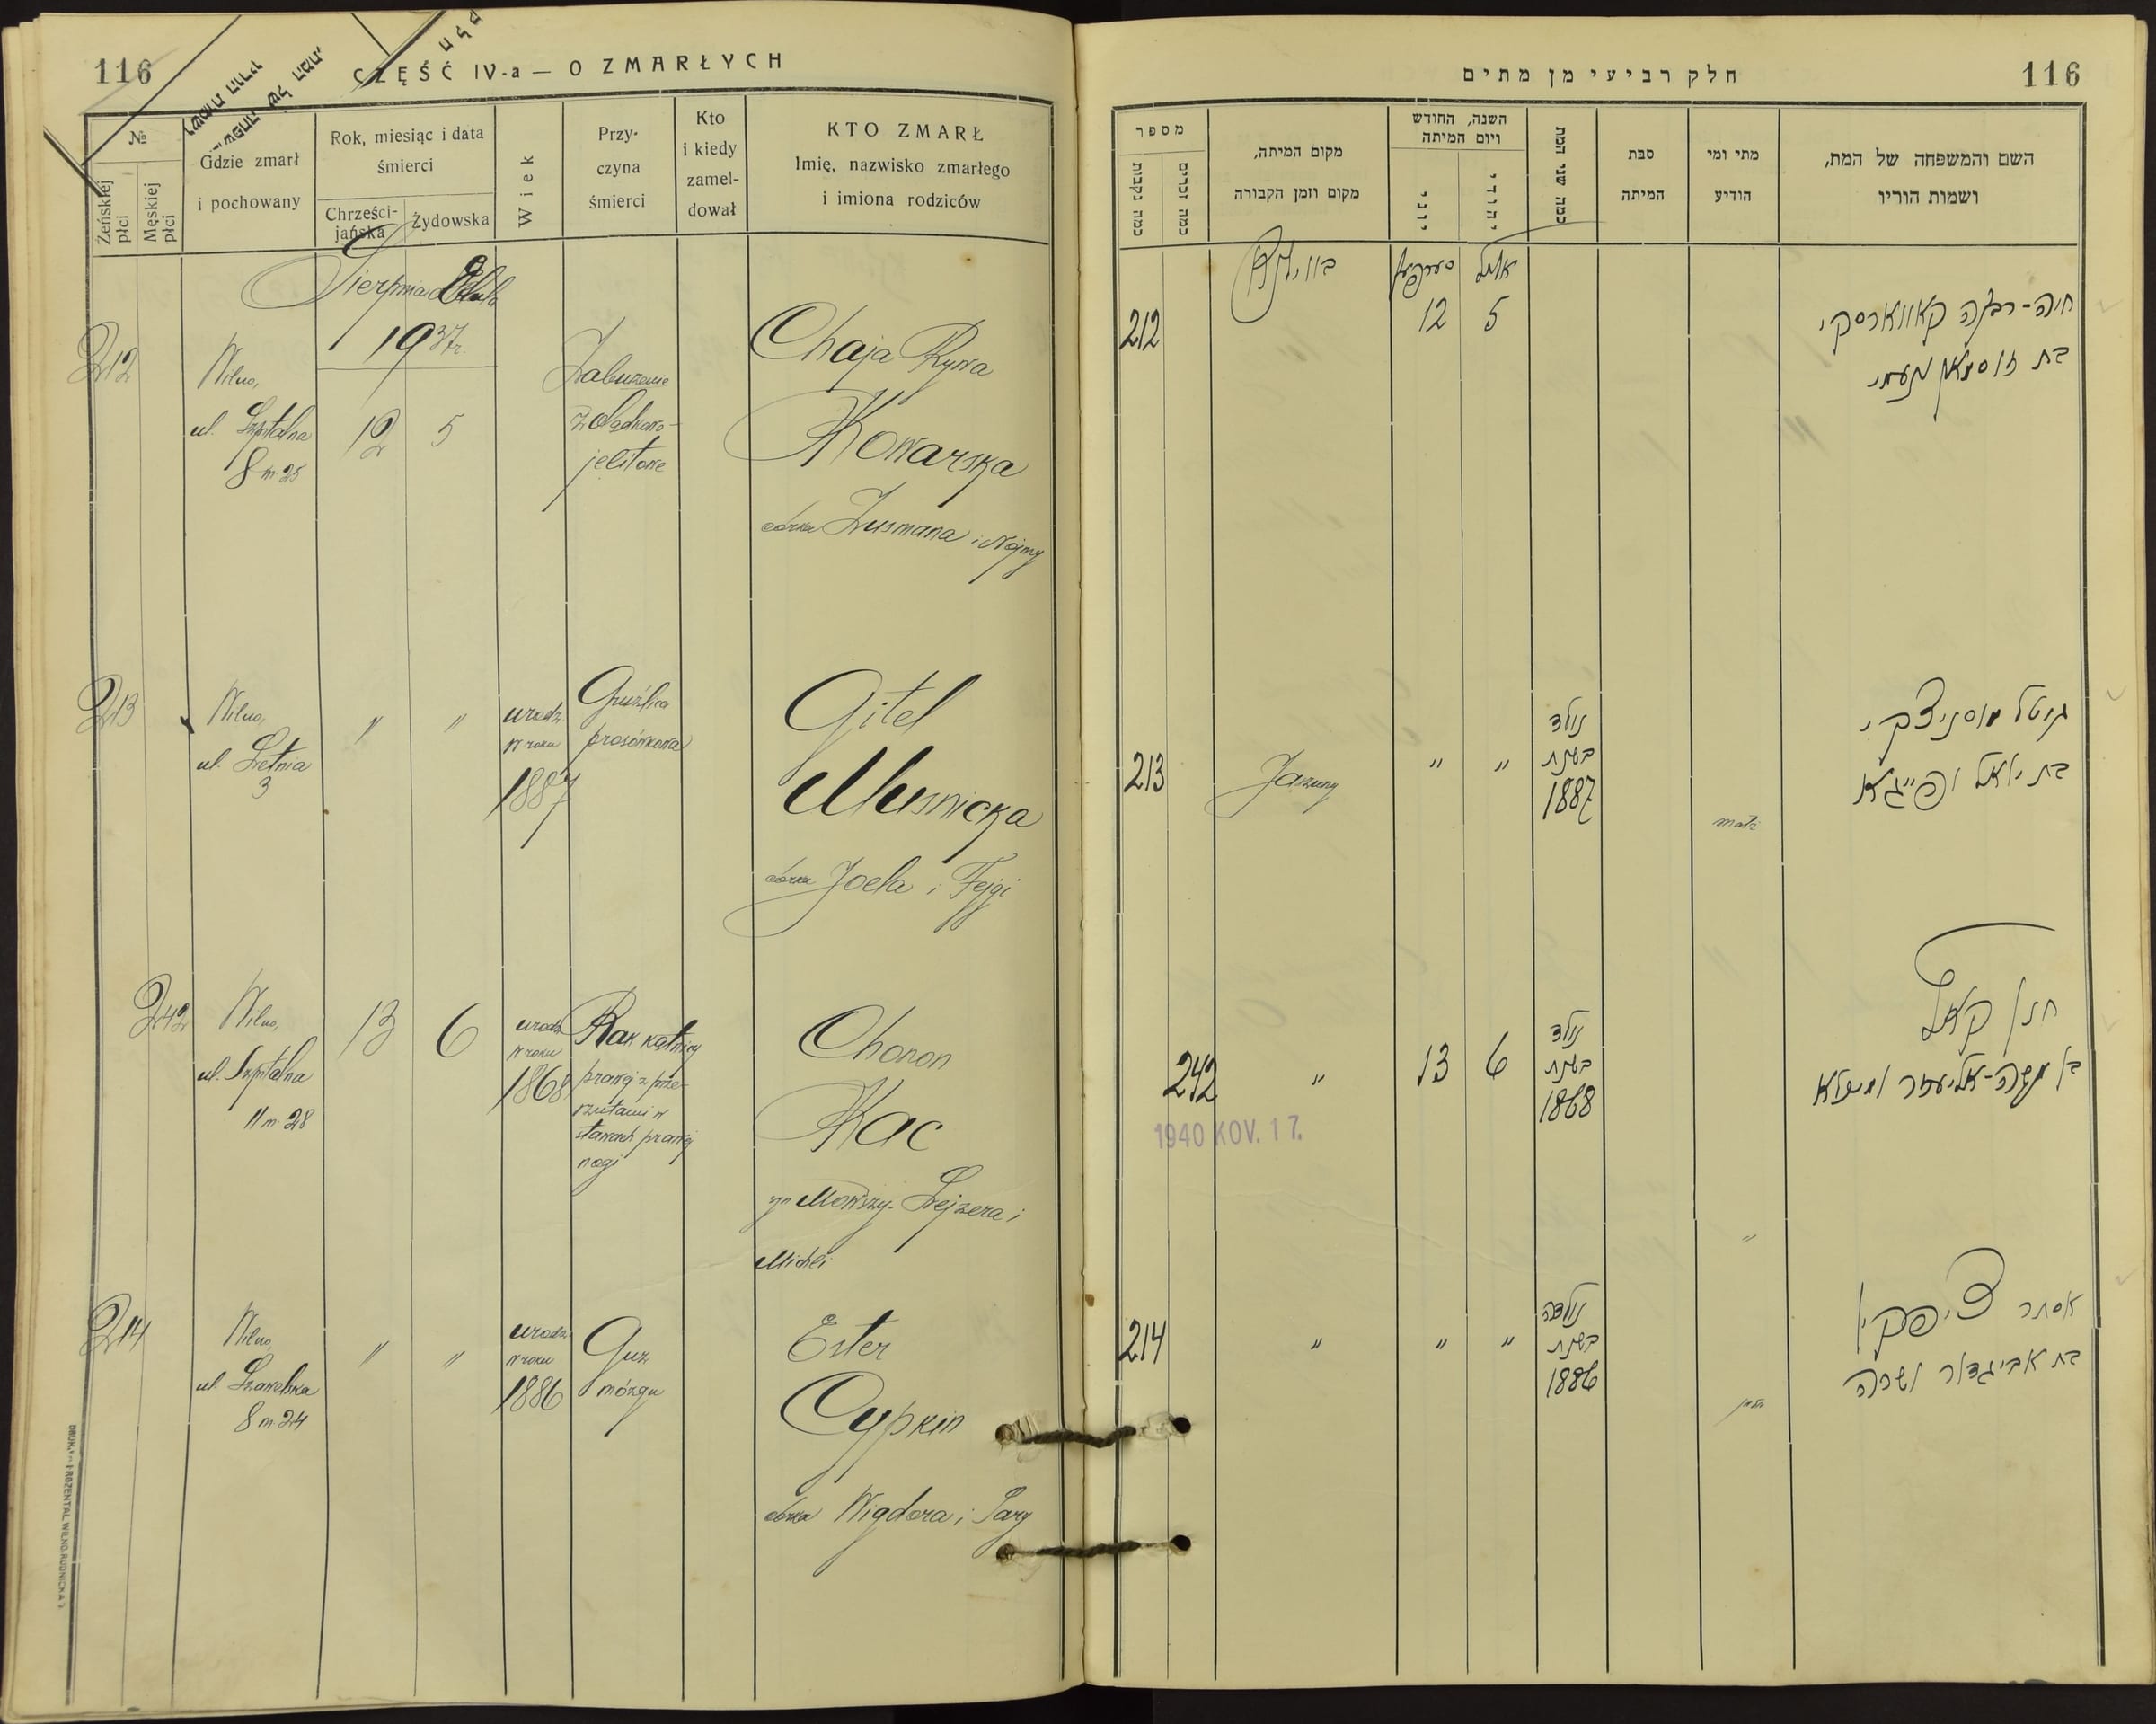 116
CZĘŚĆ IV-a — O ZMARŁYCH
№
Żeńskiej płci
Męskiej płci
Gdzie zmarł
i pochowany
Rok, miesiąc i data
śmierci
Chrześci-
jańska
Żydowska
Wiek
Przy-
czyna
śmierci
Kto
i kiedy
zamel-
dował
KTO ZMARŁ
Imię, nazwisko zmarłego
i imiona rodziców
Sierpnia Elula
1937 r.
212
Wilno,
ul. Szpitalna
8 m 25
12
5
Zaburzenie
żołądkowo-
jelitowe
Chaja Rywa
Kowarska
córka Zusmana i Nojmy
213
Wilno,
ul. Letnia
3
"
"
urodz.
w roku
1887
Gruźlica
prosówkowa
Gitel
Musnicka
córka Joela i Fejgi
242
Wilno,
ul. Szpitalna
11 m. 28
13
6
urodz.
w roku
1868
Rak kątnicy
prawej z prze-
rzutami w
stawach prawej
nogi
Chonon
Kac
syn Mowszy-Lejzera i
Michli
214
Wilno,
ul. Szawelska
8 m. 24
"
"
urodz.
w roku
1886
Guz
mózgu
Ester
Cypkin
córka Wigdora i Sary
חלק רביעי מן מתים
116
מספר
כמה נקבות
כמה זכרים
מקום המיתה,
מקום וזמן הקבורה
השנה, החודש
ויום המיתה
יווני
יהודי
כמה שני המת
סבת
המיתה
מתי ומי
הודיע
השם והמשפחה של המת,
ושמות הוריו
212
ווילנא
12
אלול
5
חיה-רבקה קאווארסקי
בת זוסמאן ונעמי
213
Jaszuny
"
"
נולד
בשנת
1887
גיטל מוסניצקי
בת יואל ופייגא
242
"
13
6
נולד
בשנת
1868
חנן קאץ
בן משה-אליעזר ומיכלא
1940 KOV. 17.
"
214
"
"
"
נולדה
בשנת
1886
אסתר ציפקין
בת אביגדור ושרה